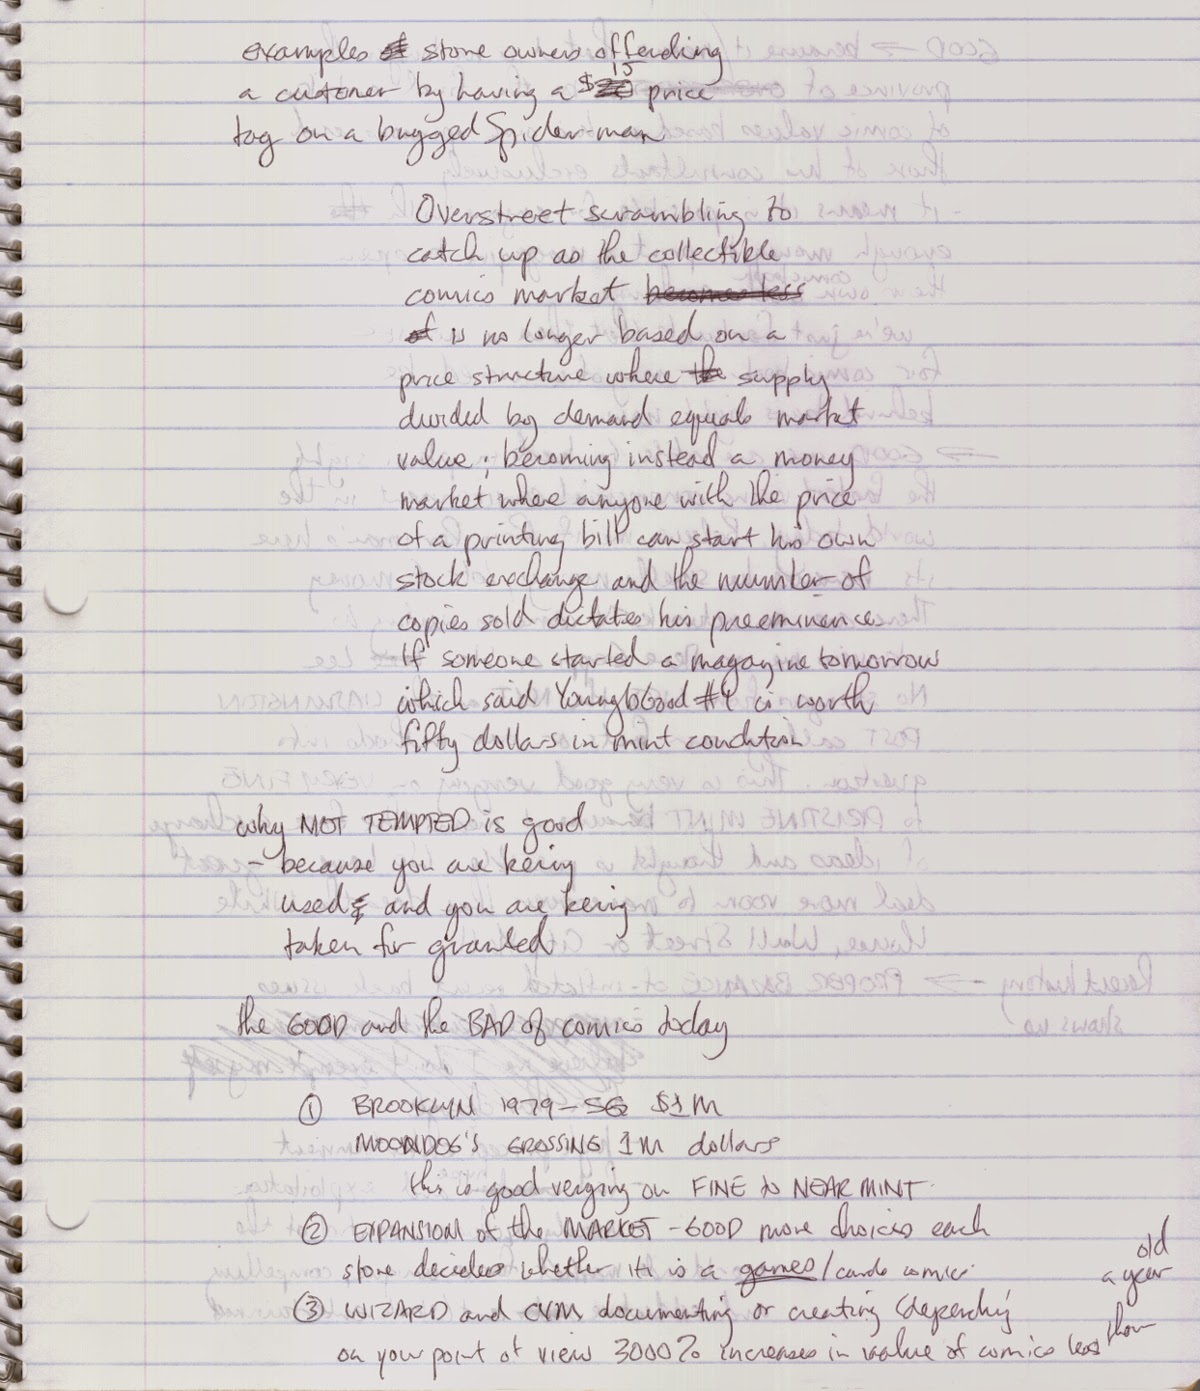 examples of store owners offending
a customer by having a $15 price
tag on a bugged Spider-man
Overstreet scrambling to
catch up as the collectible
comics market becomes less
of is no longer based on a
price structure where the supply
divided by demand equals market
value; becoming instead a money
market where anyone with the price
of a printing bill can start his own
stock exchange and the number of
copies sold dictates his preeminence.
If someone started a magazine tomorrow
which said Youngblood #4 is worth
fifty dollars in mint condition
why NOT TEMPTED is good
- because you are being
used & and you are being
taken for granted
the GOOD and the BAD of comics today
① BROOKLYN 1979 - SG $1M
MOONDOG'S GROSSING 1M dollars
this is good verging on FINE to NEAR MINT.
② EXPANSION of the MARKET - GOOD more choices each
store decides whether it is a games/cards comics
③ WIZARD and CVM documenting or creating (depending
on your point of view 3000% increases in value of comics less than
a year
old